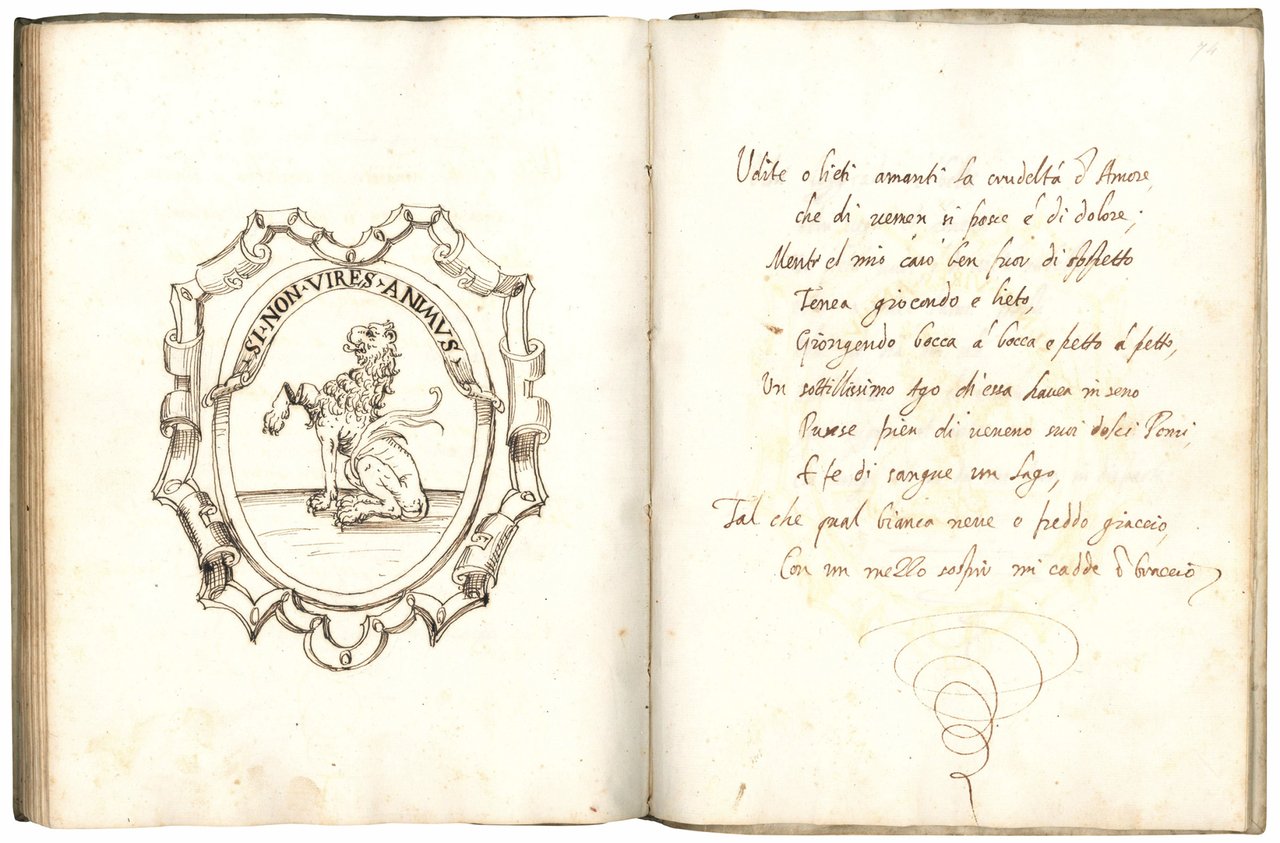 SI · NON · VIRES · ANIMVS
74
Udite o lieti amanti la crudeltá d' Amore,
che di uenen si pasce é di dolore;
Mentr' el mio caro ben fuor di sospetto
Tenea giocondo e lieto,
Giongendo bocca á bocca e petto á petto,
Un sottilissimo Ago ch'essa hauea in seno
Punse pien di ueneno suoi dolci Pomi,
E fe di sangue un lago,
Tal che qual bianca neue o freddo giaccio,
Con un mezzo sospir mi cadde in braccio